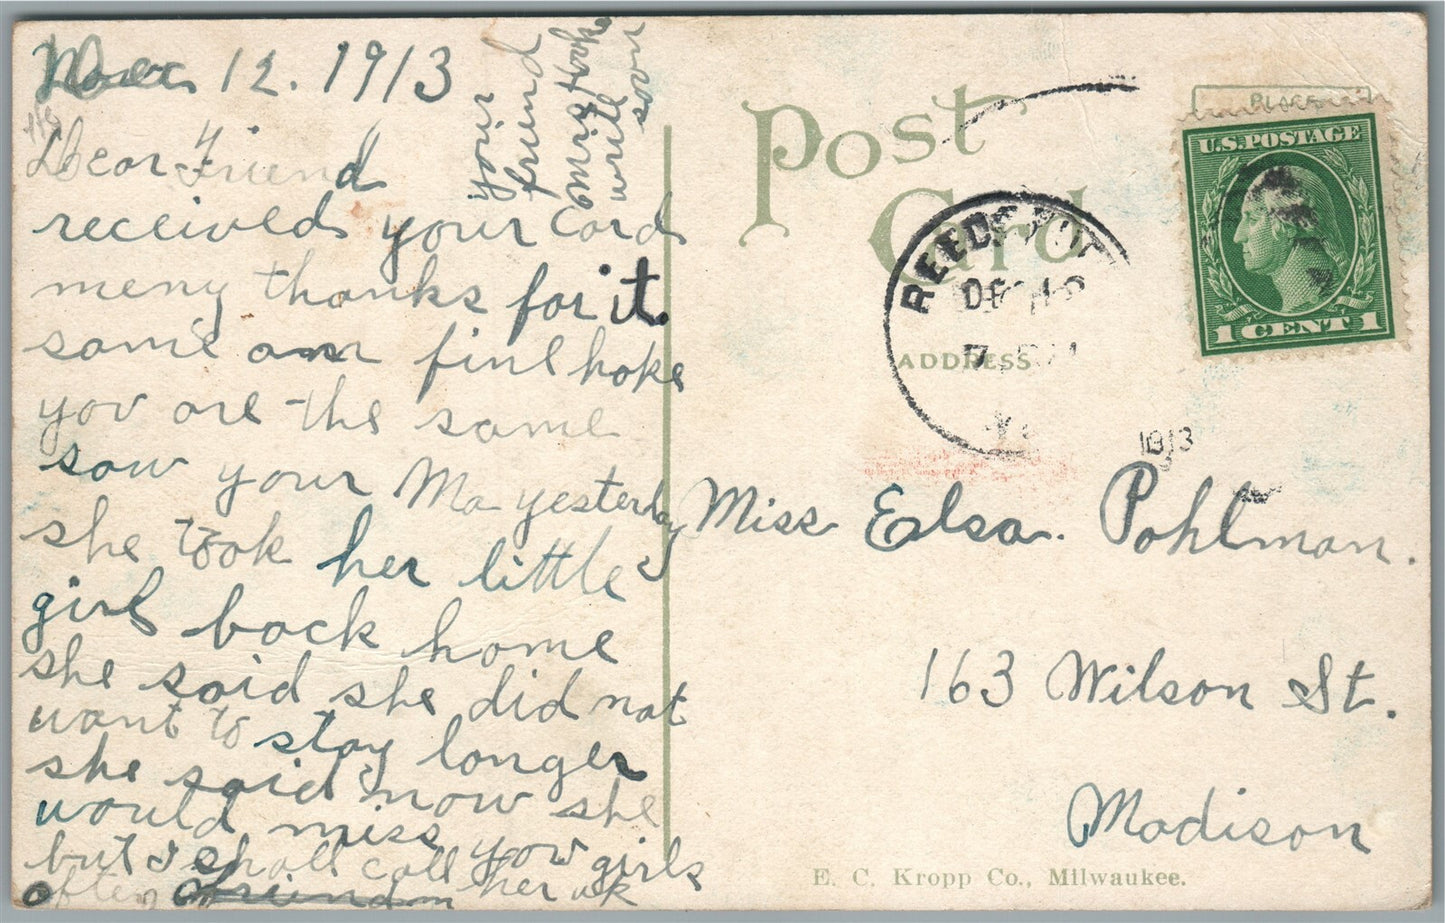 12. 1913
Dear Friend
received your Card
meny thanks for it.
same am fine hoke
yov are the same
saw your Ma yesterday
she took her little
girl back home
she said she did not
want to stay longer
she said now she
would miss yow girls
but I shall call her uk
often
your
friend
write
soon
Post
Card
PLACE
U.S. POSTAGE
1 CENT 1
REEDS
DEC
7
ADDRESS
1913
Miss Elsa. Pohlman.
163 Wilson St.
Madison
E. C. Kropp Co., Milwaukee.